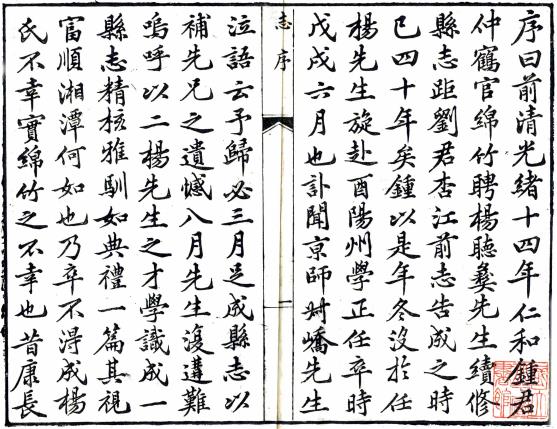 序曰前清光緒十四年仁和鍾君
仲鶴官綿竹聘楊聽彝先生續修
縣志距劉君杏江前志告成之時
已四十年矣鍾以是年冬沒於任
楊先生旋赴酉陽州學正任卒時
戊戌六月也訃聞京師叔嶠先生
志序
一
泣語云予歸必三月足成縣志以
補先兄之遺憾八月先生復遘難
嗚呼以二楊先生之才學識成一
縣志精核雅馴如典禮一篇其視
富順湘潭何如也乃卒不淂成楊
氏不幸實綿竹之不幸也昔康長